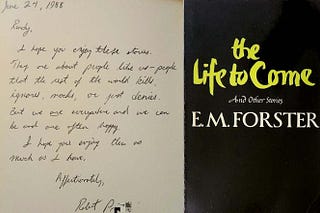 June 24, 1988
Randy,
I hope you enjoy these stories.
They are about people like us - people
that the rest of the world kills,
ignores, mocks, or just denies.
But we are everywhere and we can
be and are often happy.
I hope you enjoy them as
much as I have.
Affectionately,
Robert
the
Life to Come
And Other Stories
E. M. FORSTER